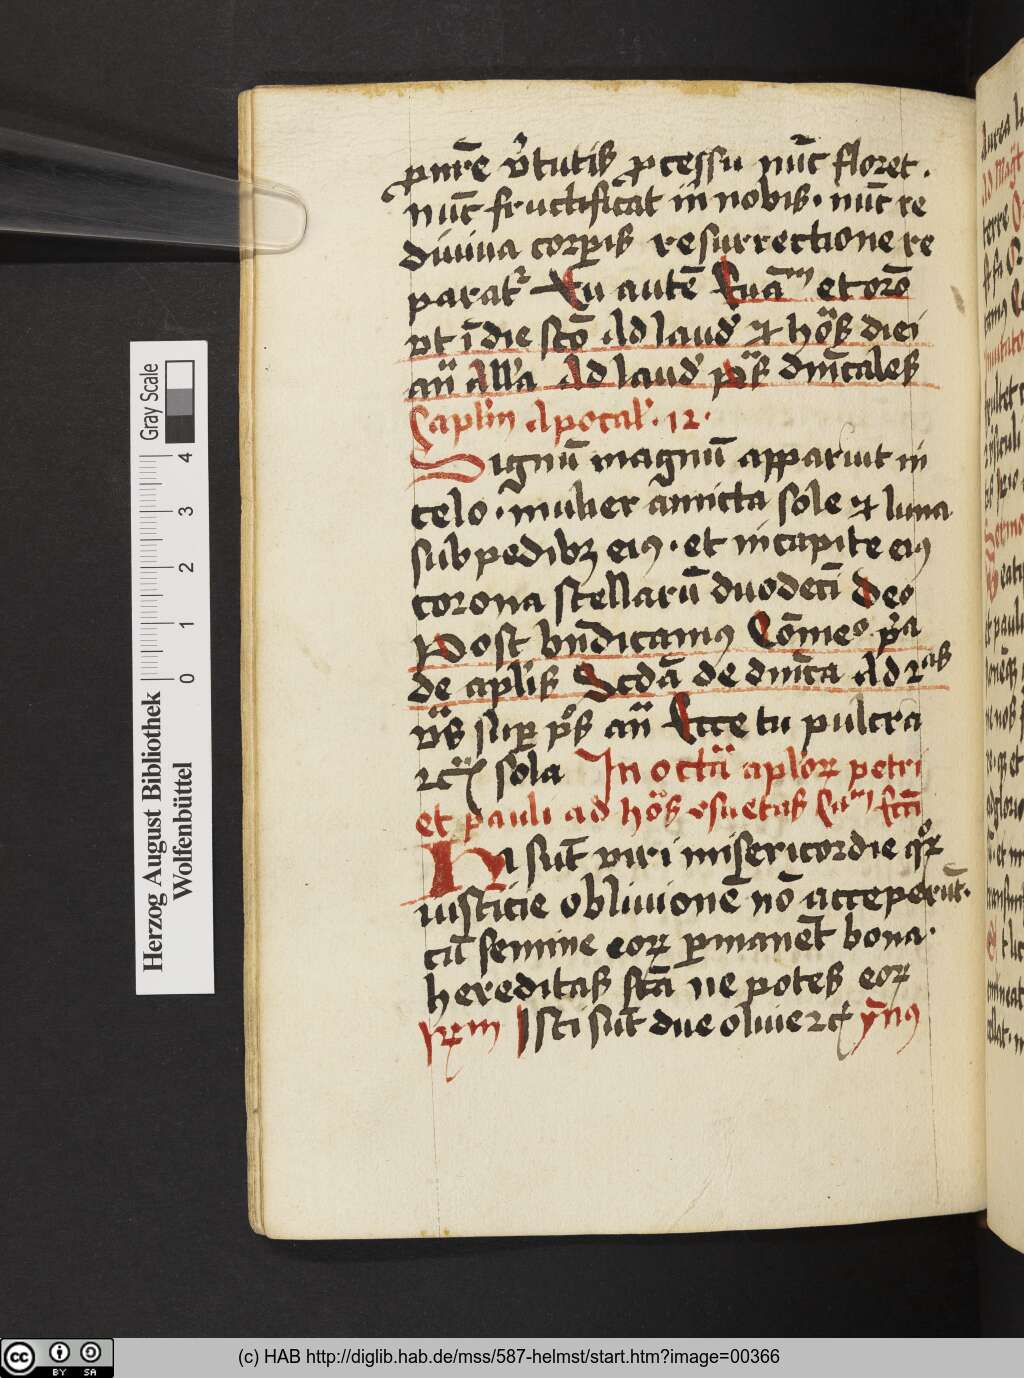 pmr̄e v̾tutis ꝓcessu nūc floret .
nūc fructificat in nobis · nūc re
diviva corꝑis resurrectione re
parat̾ Tu autē Euāᵐ et orō
ut ī die scō Ad laud̾ et hōs diei
añ all̾a Ad laud̾ p̄s dn̄icales
Caplm Apocal̾ · 12 ·
Signū magnū apparuit in
celo · mulier amicta sole et luna
sub pedibꝫ eiꝰ · et in capite eiꝰ
corona stellarū duodecī deo
Post bn̄dicamꝰ Cōmeo p̾a
de aplis Scdā de dn̄ica Ad 2as
v̄s suꝑ p̄s añ Ecce tu pulcra
⁊c̄ sola In octā aplōꝝ petri
et pauli ad hōs ꝯsuetas Caᵐ scti
Hi sūt viri misericordie qͦꝝ
iusticie oblivionē nō acceperūt ·
cū semine eoꝝ ꝑmanēt bona ·
hereditas scā nepotes eoꝝ
Isti sūt due olive ⁊c̄ ẏnꝰ
Herzog August Bibliothek
Wolfenbüttel
Gray Scale
0 1 2 3 4
cc BY SA
(c) HAB http://diglib.hab.de/mss/587-helmst/start.htm?image=00366